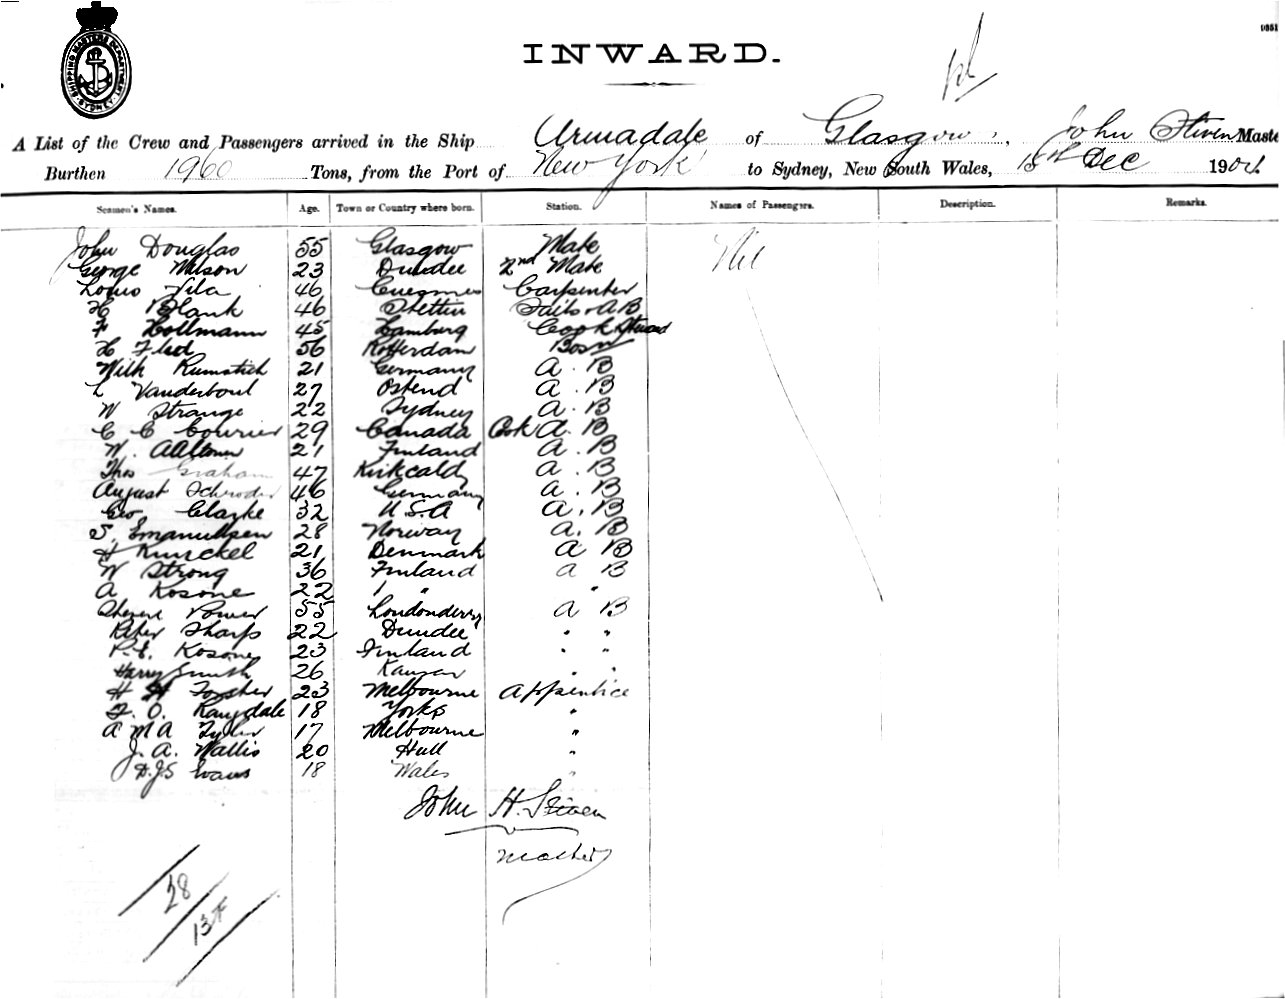 SHIPPING MASTERS DEPARTMENT SYDNEY
INWARD.
A List of the Crew and Passengers arrived in the Ship Armadale of Glasgow, John Steven Maste
Burthen 1960 Tons, from the Port of New York to Sydney, New South Wales, 15th Dec 1904
Seamen's Names. Age. Town or Country where born. Station. Names of Passengers. Description. Remarks.
John Douglas 55 Glasgow Mate Nil
George Wilson 23 Dundee 2nd Mate
Louis Vila 46 Carpenter
H Blank 46 Stettin Sailor AB
F Hollmann 45 Hamburg Cook Steward
H Flid 56 Rotterdam Bosn
Wilh Rumstich 21 Germany A. B
L Vanderboul 27 Ostend A. B
W Strange 22 Sydney A. B
C C Courier 29 Canada A. B
W. 21 Finland A. B
Thos Graham 47 Kirkcaldy A. B
August Schroder 46 Germany A. B
Geo Clarke 32 U.S.A A. B
S. Emanuelsen 28 Norway A. B
H Kunckel 21 Denmark A B
W Strong 36 Finland A B
A Kosone 22 " "
Power 55 Londonderry A B
Peter Sharp 22 Dundee " "
P. E. Kosone 23 Finland " "
Harry Smith 26 " "
H H Forster 23 Melbourne Apprentice
F. O. Rangdale 18 Yorks "
A M A Tyler 17 Melbourne "
J. A. Wallis 20 Hull "
D.J.S Evans 18 Wales "
John H. Steven
Master
28
13F